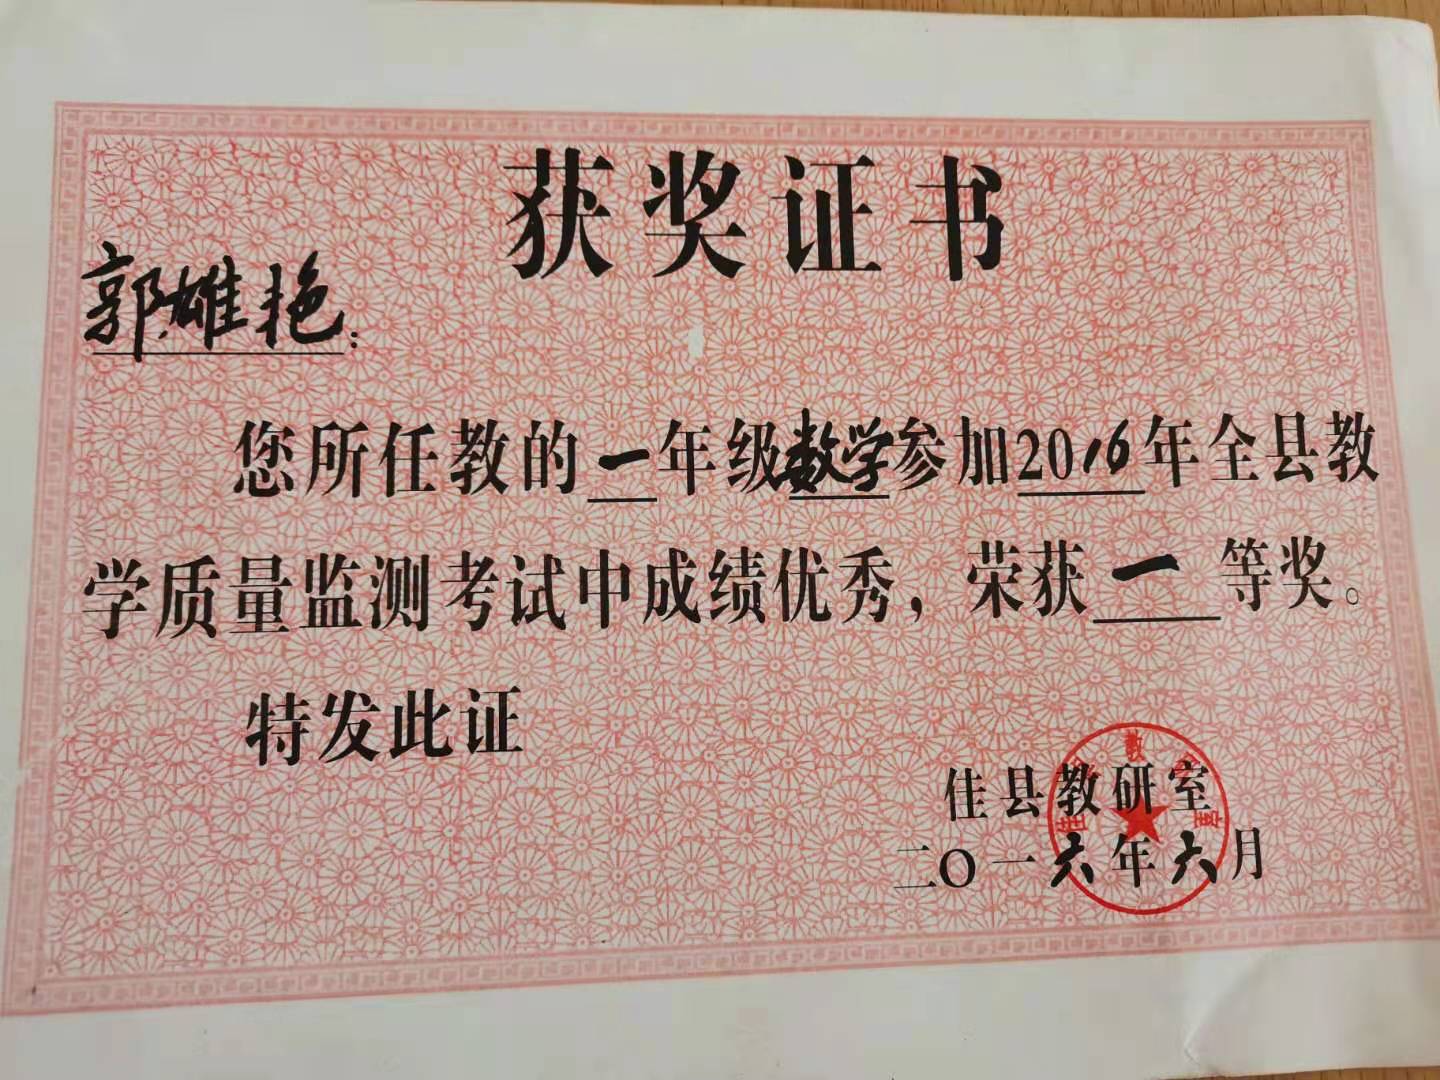 获奖证书
郭雄艳：
您所任教的一年级数学参加2016年全县教
学质量监测考试中成绩优秀，荣获一等奖。
特发此证
佳县教研室
二〇一六年六月